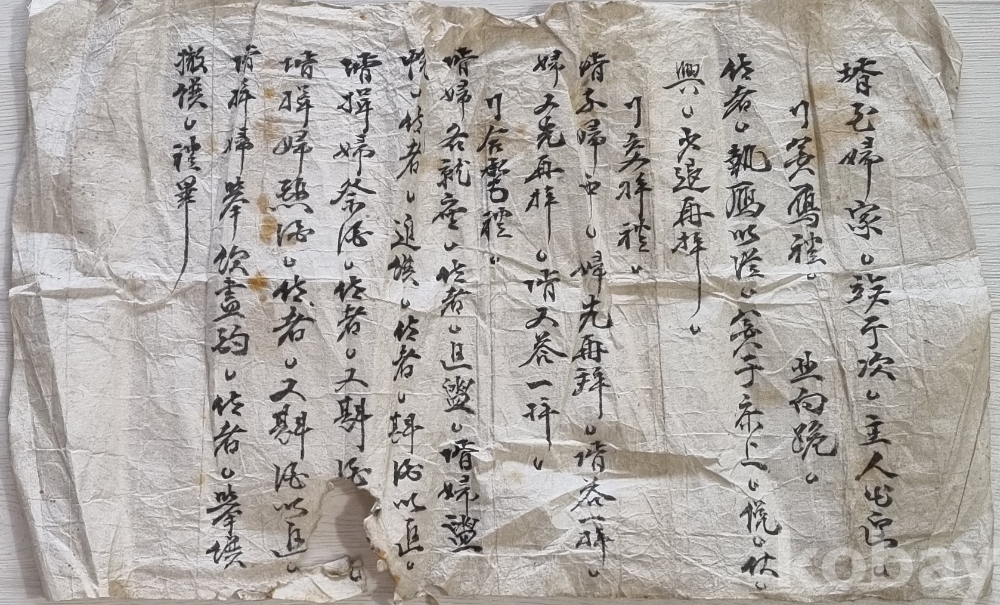 壻至婦家、竢于次、主人出迎、
行奠鴈禮、 北向跪、
侍者、執鴈以從、奠于床上、俛、伏、
興、少退再拜、
行交拜禮、
壻東婦西、婦先再拜、壻答一拜、
婦又先再拜、壻又答一拜、
行合巹禮、
壻婦各就坐、侍者、進盥、壻婦盥
帨、侍者、進饌、侍者、斟酒以進、
壻揖婦祭酒、侍者、又斟酒
壻揖婦 酒、侍者、又斟酒以進、
壻揖婦擧飮盡 、侍者、擧
撤饌、禮畢
kobay